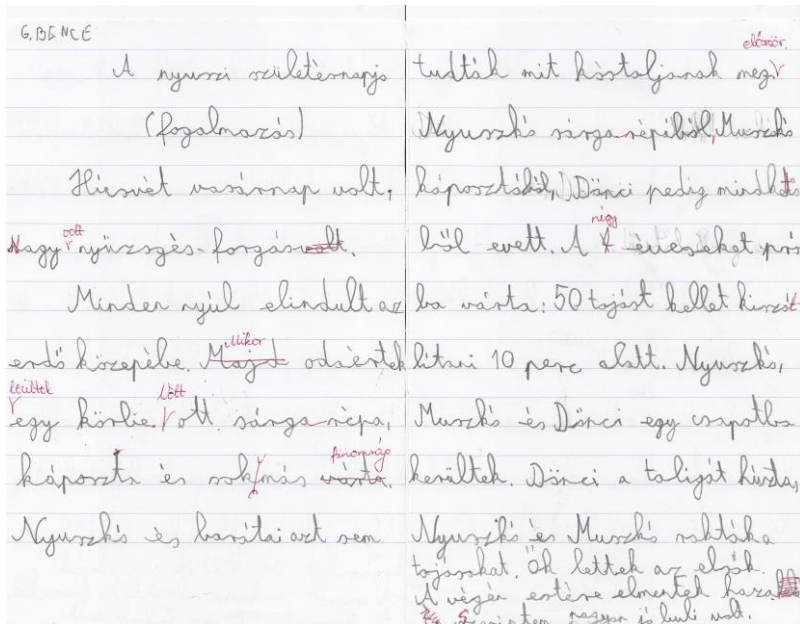 G. BENCE
A nyuszi születésnapja
(fogalmazás)
Húsvét vasárnap volt,
Nagy volt nyüzsgés-forgás volt.
Minden nyúl elindult az
Mikor
erdő közepébe. Majd odaértek
leültek volt
egy körbe. ott sárga répa,
finomság
káposzta és sok más várta.
Nyuszkó és barátai azt sem
először.
tudták mit kóstoljanak meg
Nyuszkó sárga répából, Muszkó
káposztából, Dönci pedig mindket
négy
ből evett. A 4 érkeseket pró
ba várta: 50 tojást kellet kiszó
lítani 10 perc alatt. Nyuszkó,
Muszkó és Dönci egy csapatba
kerültek. Dönci a taligát húzta,
Nyuszkó és Muszkó rakták a
tojásokat. Ők lettek az elsők.
A végén estére elmentek haza
szerintem nagyon jó buli volt.